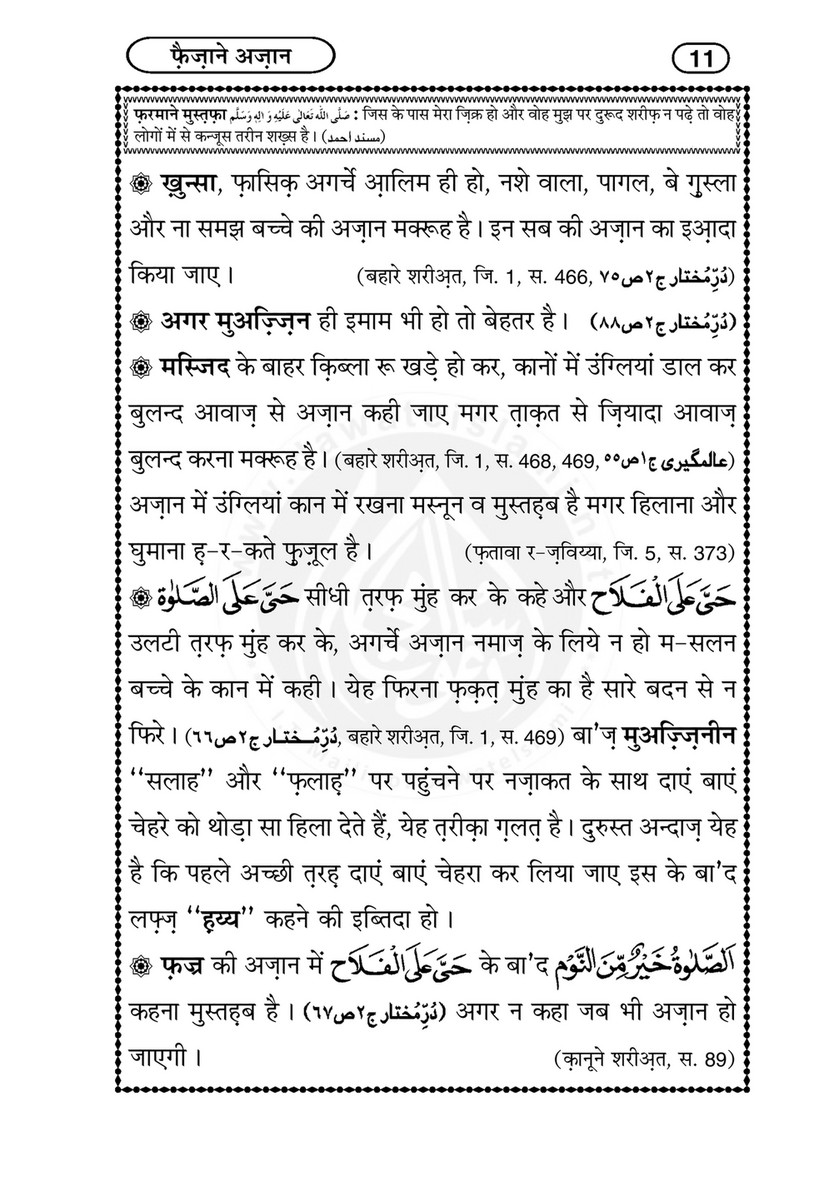 फ़ैज़ाने अज़ान
11
फ़रमाने मुस्त़फ़ा صَلَّى اللهُ تَعَالٰى عَلَيْهِ وَ اٰلِهٖ وَسَلَّم : जिस के पास मेरा ज़िक्र हो और वोह मुझ पर दुरूद शरीफ़ न पढ़े तो वोह
लोगों में से कन्जूस तरीन शख़्स है। (مسند احمد)
۞ ख़ुन्सा, फ़ासिक़ अगर्चे आ़लिम ही हो, नशे वाला, पागल, बे ग़ुस्ला
और ना समझ बच्चे की अज़ान मक्रूह है। इन सब की अज़ान का इआ़दा
किया जाए। (बहारे शरीअ़त, जि. 1, स. 466, دُرِّمُختار ج٢ ص٧٥)
۞ अगर मुअज़्ज़िन ही इमाम भी हो तो बेहतर है। (دُرِّمُختار ج٢ ص٨٨)
۞ मस्जिद के बाहर क़िब्ला रू खड़े हो कर, कानों में उंग्लियां डाल कर
बुलन्द आवाज़ से अज़ान कही जाए मगर त़ाक़त से ज़ियादा आवाज़
बुलन्द करना मक्रूह है। (बहारे शरीअ़त, जि. 1, स. 468, 469, عالمگیری ج١ ص٥٥)
अज़ान में उंग्लियां कान में रखना मस्नून व मुस्तह़ब है मगर हिलाना और
घुमाना ह़-र-कते फ़ुज़ूल है। (फ़तावा र-ज़विय्या, जि. 5, स. 373)
۞ حَیَّ عَلَی الصَّلٰوۃ सीधी त़रफ़ मुंह कर के कहे और حَیَّ عَلَی الْفَلَاح
उलटी त़रफ़ मुंह कर के, अगर्चे अज़ान नमाज़ के लिये न हो म-सलन
बच्चे के कान में कही। येह फिरना फ़क़त़ मुंह का है सारे बदन से न
फिरे। (دُرِّمُختار ج٢ ص٦٦, बहारे शरीअ़त, जि. 1, स. 469) बा'ज़ मुअज़्ज़िनीन
“सलाह” और “फ़लाह़” पर पहुंचने पर नज़ाकत के साथ दाएं बाएं
चेहरे को थोड़ा सा हिला देते हैं, येह त़रीक़ा ग़लत़ है। दुरुस्त अन्दाज़ येह
है कि पहले अच्छी त़रह़ दाएं बाएं चेहरा कर लिया जाए इस के बा'द
लफ़्ज़ “ह़य्य” कहने की इब्तिदा हो।
۞ फ़ज्र की अज़ान में حَیَّ عَلَی الْفَلَاح के बा'द اَلصَّلٰوۃُ خَیْرٌ مِّنَ النَّوْم
कहना मुस्तह़ब है। (دُرِّمُختار ج٢ ص٦٧) अगर न कहा जब भी अज़ान हो
जाएगी। (क़ानूने शरीअ़त, स. 89)